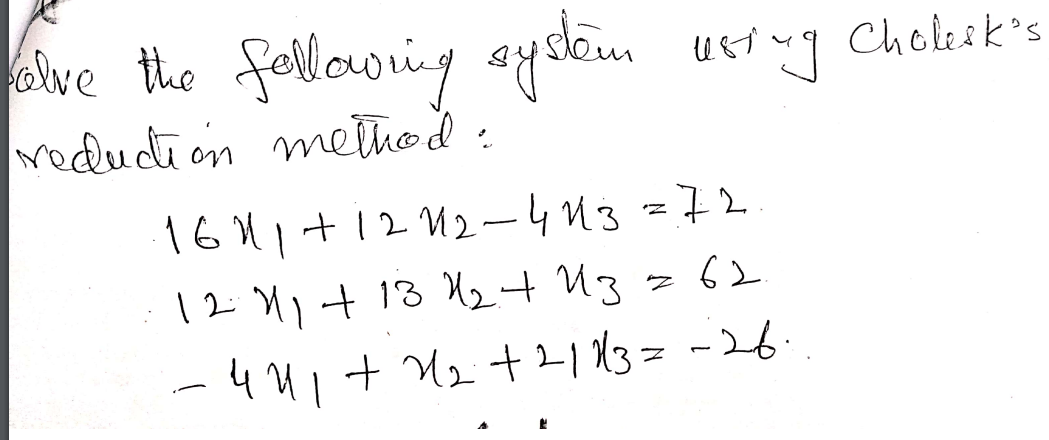 Solve the following system using Cholesk's
reduction method:
16x1 + 12x2 - 4x3 = 72.
12x1 + 13x2 + x3 = 62.
-4x1 + x2 + 21x3 = -26.